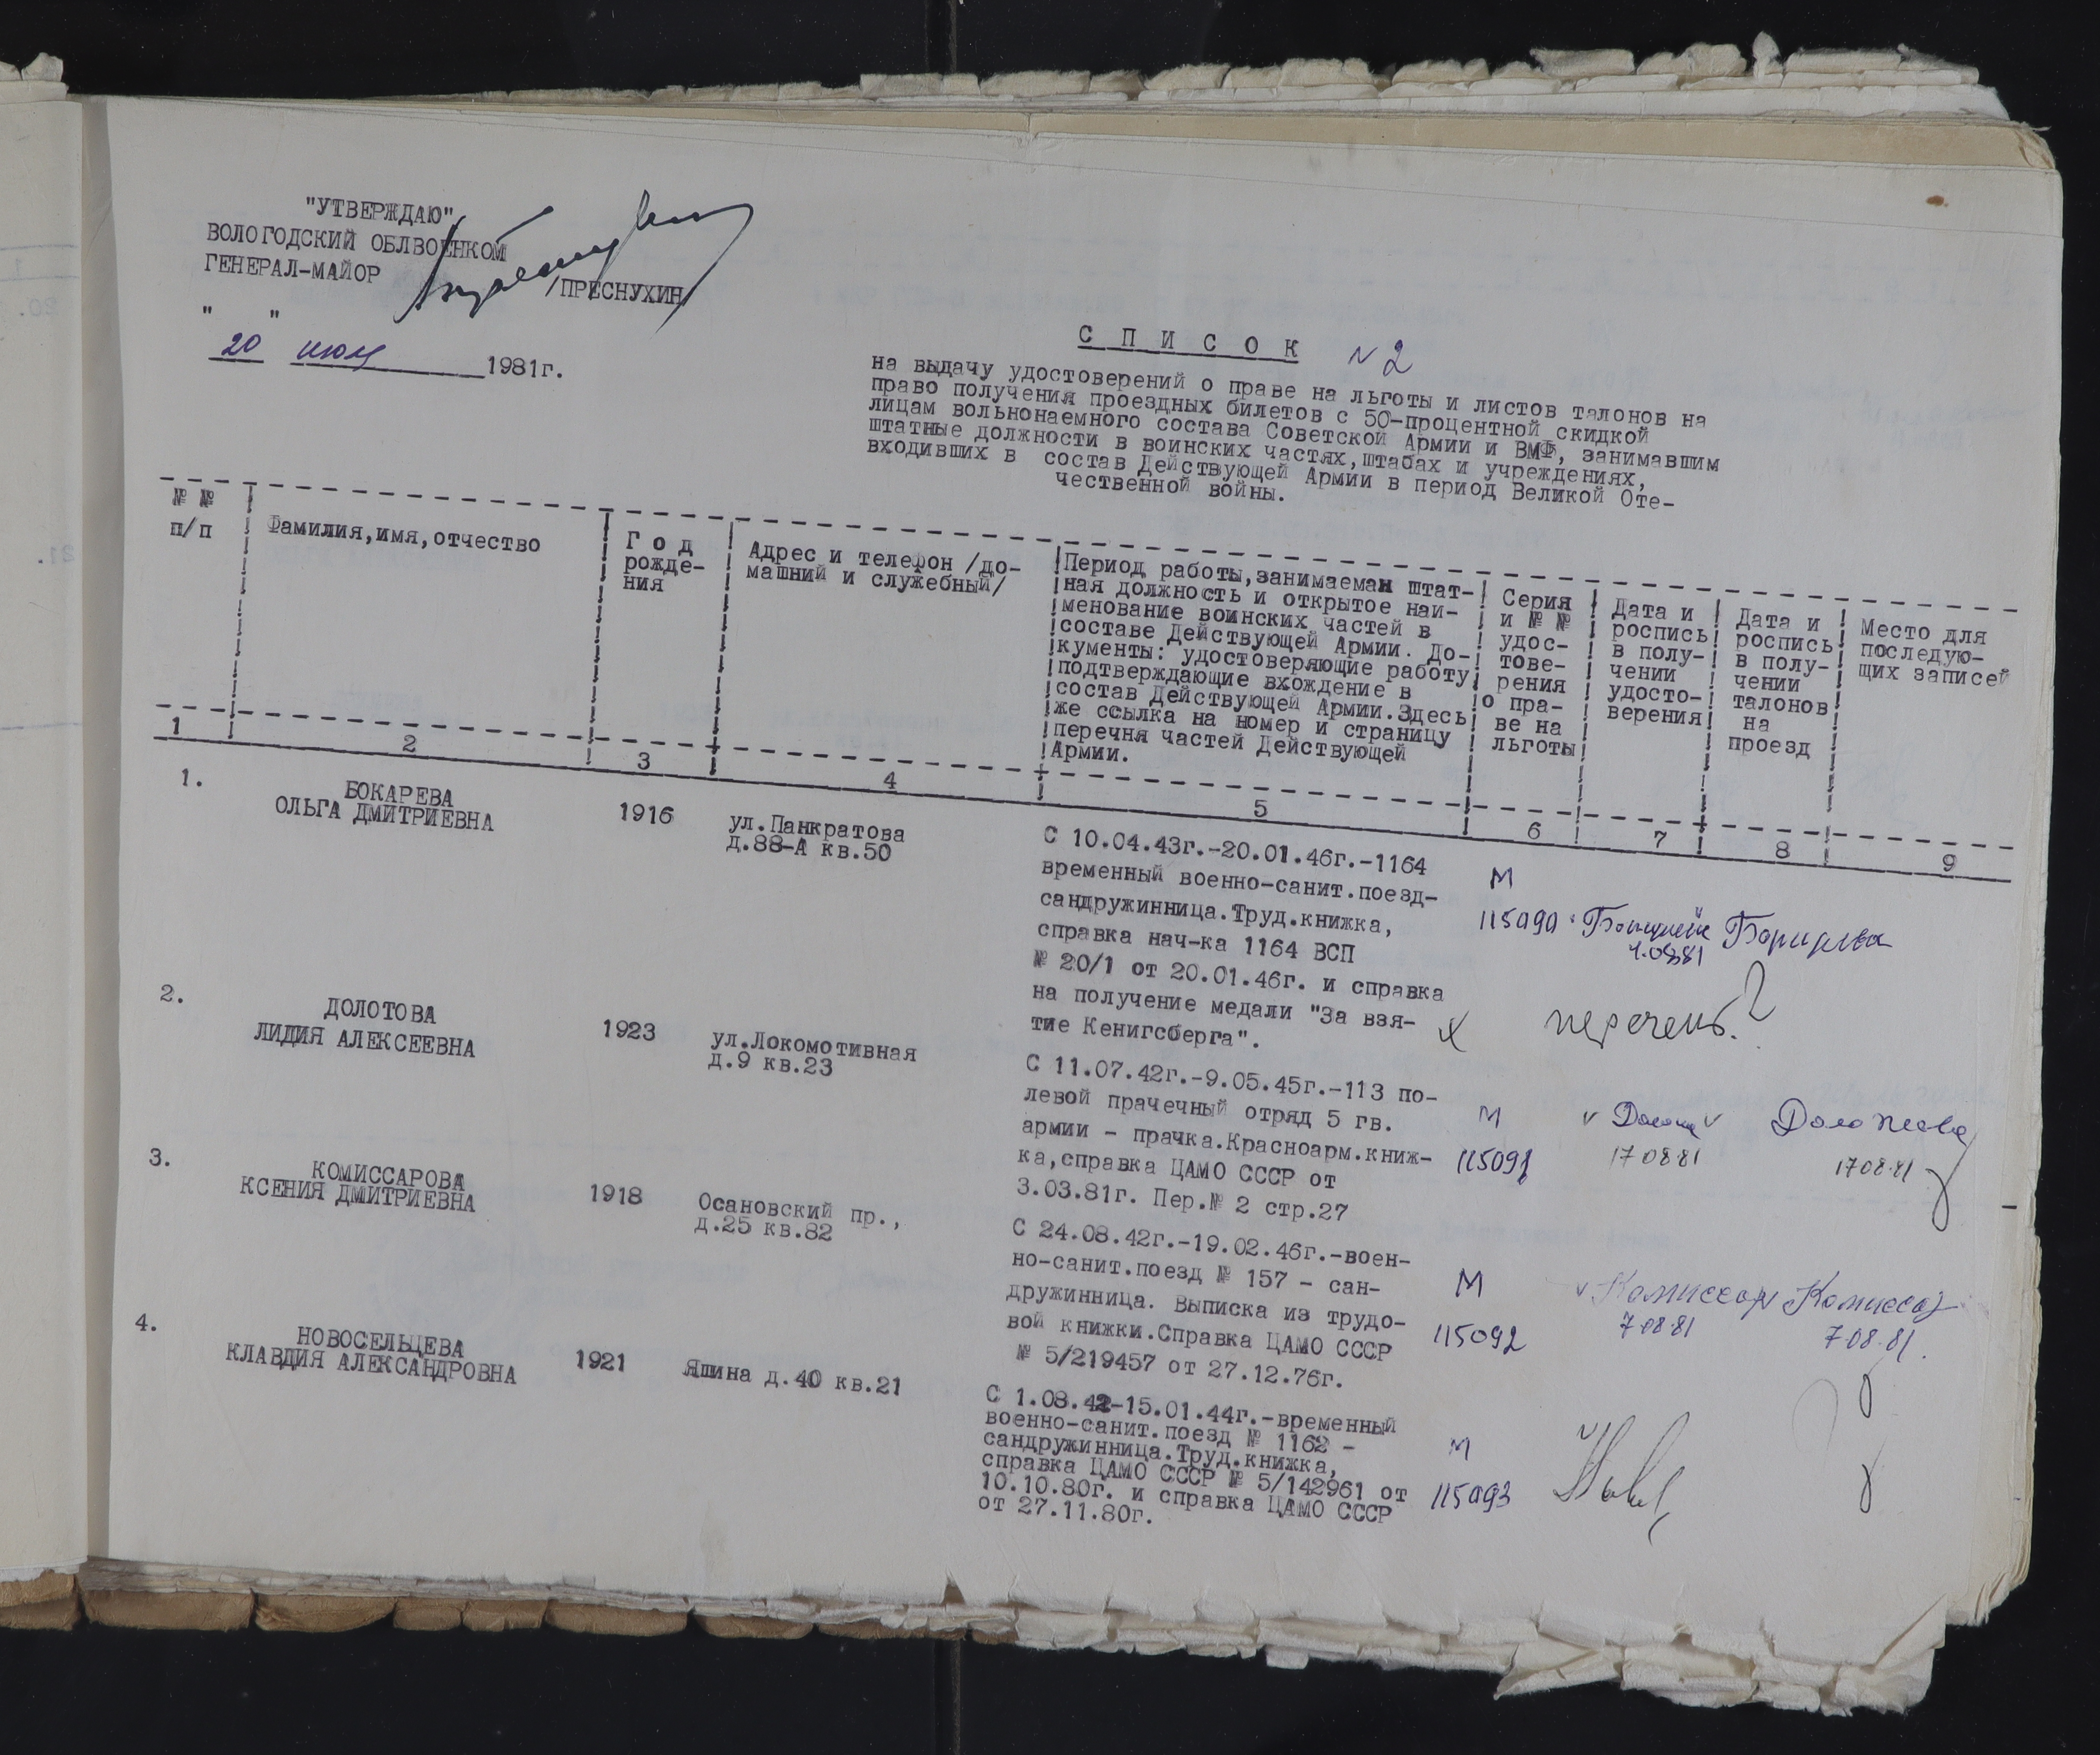 "УТВЕРЖДАЮ"
ВОЛОГОДСКИЙ ОБЛВОЕНКОМ
ГЕНЕРАЛ-МАЙОР
/ПРЕСНУХИН/
" "
20 июля 1981г.
С П И С О К № 2
на выдачу удостоверений о праве на льготы и листов талонов на
право получения проездных билетов с 50-процентной скидкой
лицам вольнонаемного состава Советской Армии и ВМФ, занимавшим
штатные должности в воинских частях, штабах и учреждениях,
входивших в состав Действующей Армии в период Великой Оте-
чественной войны.
№ №
п/п
Фамилия, имя, отчество
Г о д
рожде-
ния
Адрес и телефон /до-
машний и служебный/
Период работы, занимаемая штат-
ная должность и открытое наи-
менование воинских частей в
составе Действующей Армии. До-
кументы: удостоверяющие работу
подтверждающие вхождение в
состав Действующей Армии. Здесь
же ссылка на номер и страницу
перечня частей Действующей
Армии.
Серия
и № №
удос-
тове-
рения
о пра-
ве на
льготы
Дата и
роспись
в полу-
чении
удосто-
верения
Дата и
роспись
в полу-
чении
талонов
на
проезд
Место для
последую-
щих записей
1 2 3 4 5 6 7 8 9
1.
БОКАРЕВА
ОЛЬГА ДМИТРИЕВНА
1916
ул.Панкратова
д.88-А кв.50
С 10.04.43г.-20.01.46г.-1164
временный военно-санит.поезд-
сандружинница.Труд.книжка,
справка нач-ка 1164 ВСП
№ 20/1 от 20.01.46г. и справка
на получение медали "За взя-
тие Кенигсберга".
М
115090
перечень?
2.
ДОЛОТОВА
ЛИДИЯ АЛЕКСЕЕВНА
1923
ул.Локомотивная
д.9 кв.23
С 11.07.42г.-9.05.45г.-113 по-
левой прачечный отряд 5 гв.
армии - прачка.Красноарм.книж-
ка,справка ЦАМО СССР от
3.03.81г. Пер.№ 2 стр.27
М
115091
17 08 81
17 08.81
3.
КОМИССАРОВА
КСЕНИЯ ДМИТРИЕВНА
1918
Осановский пр.,
д.25 кв.82
С 24.08.42г.-19.02.46г.-воен-
но-санит.поезд № 157 - сан-
дружинница. Выписка из трудо-
вой книжки.Справка ЦАМО СССР
№ 5/219457 от 27.12.76г.
М
115092
Комиссар Комиссар
7 08 81
7 08.81.
4.
НОВОСЕЛЬЦЕВА
КЛАВДИЯ АЛЕКСАНДРОВНА
1921
Яшина д.40 кв.21
С 1.08.42-15.01.44г.-временный
военно-санит.поезд № 1162 -
сандружинница.Труд.книжка,
справка ЦАМО СССР № 5/142961 от
10.10.80г. и справка ЦАМО СССР
от 27.11.80г.
М
115093